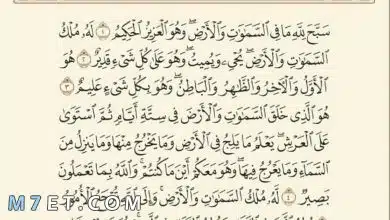 سَبَّحَ لِلَّهِ مَا فِي السَّمَاوَاتِ وَالْأَرْضِ ۖ وَهُوَ الْعَزِيزُ الْحَكِيمُ ١ لَهُ مُلْكُ
السَّمَاوَاتِ وَالْأَرْضِ ۖ يُحْيِي وَيُمِيتُ ۖ وَهُوَ عَلَىٰ كُلِّ شَيْءٍ قَدِيرٌ ٢ هُوَ
الْأَوَّلُ وَالْآخِرُ وَالظَّاهِرُ وَالْبَاطِنُ ۖ وَهُوَ بِكُلِّ شَيْءٍ عَلِيمٌ ٣
هُوَ الَّذِي خَلَقَ السَّمَاوَاتِ وَالْأَرْضَ فِي سِتَّةِ أَيَّامٍ ثُمَّ اسْتَوَىٰ
عَلَى الْعَرْشِ ۚ يَعْلَمُ مَا يَلِجُ فِي الْأَرْضِ وَمَا يَخْرُجُ مِنْهَا وَمَا يَنزِلُ مِنَ
السَّمَاءِ وَمَا يَعْرُجُ فِيهَا ۖ وَهُوَ مَعَكُمْ أَيْنَ مَا كُنتُمْ ۚ وَاللَّهُ بِمَا تَعْمَلُونَ
بَصِيرٌ ٤ لَّهُ مُلْكُ السَّمَاوَاتِ وَالْأَرْضِ ۚ وَإِلَى اللَّهِ تُرْجَعُ الْأُمُورُ
M7ET.COM